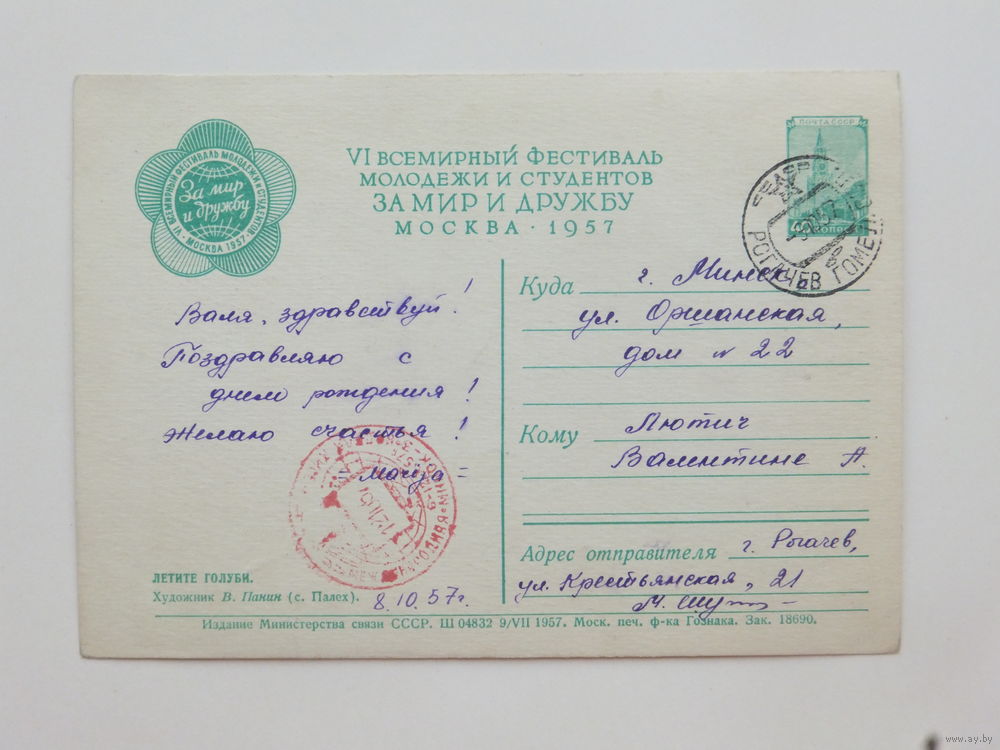 VI ВСЕМИРНЫЙ ФЕСТИВАЛЬ МОЛОДЕЖИ И СТУДЕНТОВ
За мир
и дружбу
МОСКВА 1957
VI ВСЕМИРНЫЙ ФЕСТИВАЛЬ
МОЛОДЕЖИ И СТУДЕНТОВ
ЗА МИР И ДРУЖБУ
МОСКВА · 1957
ПОЧТА СССР
РОГАЧЕВ ГОМЕЛ
Валя, здравствуй!
Поздравляю с
днем рождения!
Желаю счастья!
Куда г. Минск
ул. Оршанская,
дом № 22
Кому Лютич
Валентине А.
Адрес отправителя г. Рогачев,
ул. Крестьянская, 21
ЛЕТИТЕ ГОЛУБИ.
Художник В. Панин (с. Палех).
8.10.57г.
Издание Министерства связи СССР. Ш 04832 9/VII 1957. Моск. печ. ф-ка Гознака. Зак. 18690.
www.ay.by